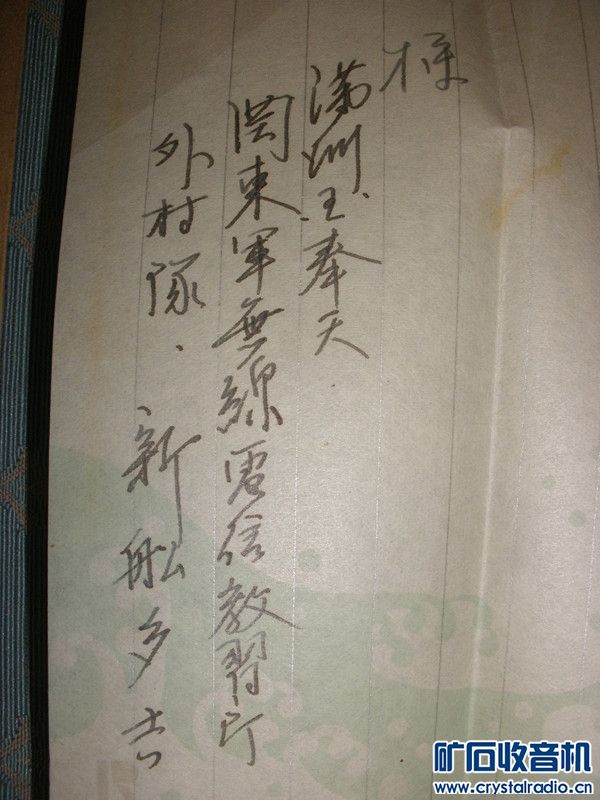 様
満洲国奉天
関東軍無線電信教習所
外村隊、新舩多吉
矿石收音机
www.crystalradio.cn